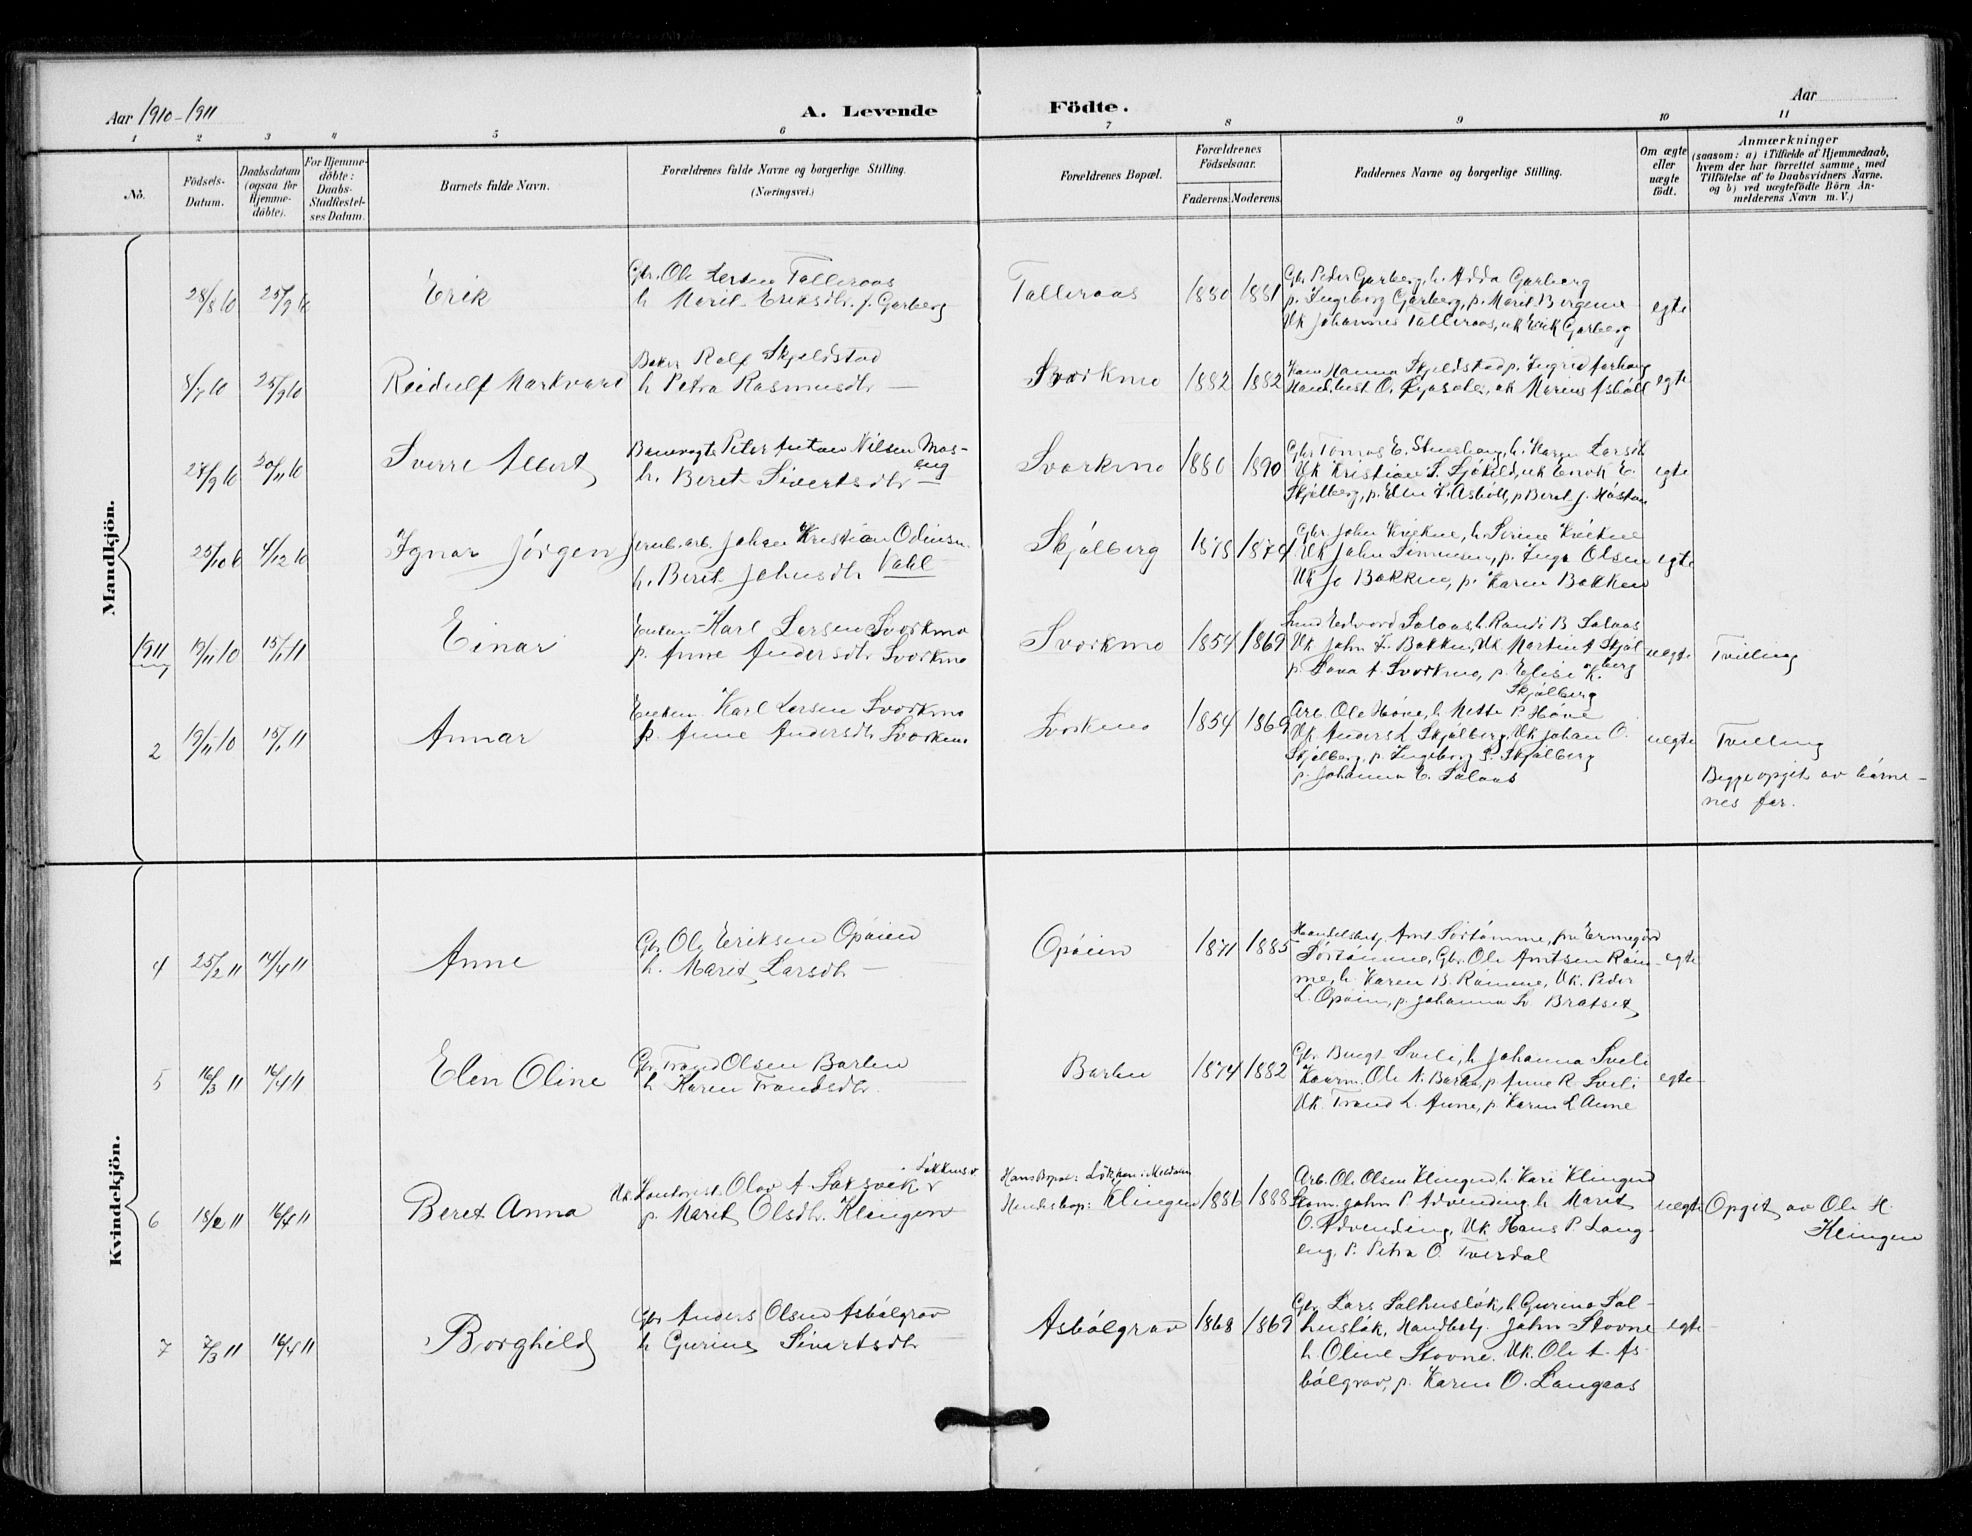 Aar 1910-1911
A. Levende
Födte.
Aar
1 2 3 4 5 6 7 8 9 10 11
No.
Födsels-Datum.
Daabsdatum (ogsaa for Hjemmedöbte).
For Hjemmedöbte: Daabs-Stadfæstelses Datum.
Barnets fulde Navn.
Forældrenes fulde Navne og borgerlige Stilling.
(Næringsvei.)
Forældrenes Bopæl.
Forældrenes Födselsaar.
Faderens. Moderens.
Faddernes Navne og borgerlige Stilling.
Om ægte eller uægte födt.
Anmærkninger
(saasom: a) i Tilfælde af Hjemmedaab, hvem der har forrettet samme, med Tilföielse af to Daabsvidners Navne, og b) ved uægtefödte Börn Anmelderens Navn m. V.)
Mandkjön.
28/8 10 25/9 10 Erik
Gbr. Ole Talleraas
h. Marit Eriksdtr. f. Garberg
Talleraas 1880 1881
Gbr Peder Garberg, h. Adda Garberg
p. Ingeborg Garberg, p. Marit
Uk Johannes Talleraas, uk Erik Garberg
egte
25/9 10 Reidulf Markvard
Baker Ralf Skjeldstad
h Petra Rasmusdtr
Svorkmo 1882 1882
Hanna Skjeldstad p. Ingrid
uk Marius Asböll
egte
27/9 10 20/11 10 Sverre Albert
Banevogt Peter Anton Nilsen Moseng
h. Beret Sivertsdtr
Svorkmo 1880 1890
Gbr Tomas E. h. Karen Larsdtr
Uk Kristian S. uk Enok E.
Skjølberg, p. Ellen Asböll, p Beret J.
egte
25/10 10 4/12 10 Ignar Jörgen
Jernb. arb. Johan Kristian Odinsen Vahl
h. Beret Johnsdtr
Skjölberg 1878 1879
Gbr. John Kvikne, h. Serine Kvikne
Uk John Simensen, p. Inga Olsen
Uk Jo Bakken, p. Karen Bakken
egte
1911
19/11 10 15/1 11 Einar
Enkem. Karl Larsen Svorkmo
p. Anne Andersdtr Svorkmo
Svorkmo 1854 1869
Edvard Solaas h. Randi B Solaas
Uk John Bakken, Uk Martin A Skjölberg
p. A. Svorkmo, p. Elise K.
Skjölberg
uegte Tvilling
2 19/11 10 15/1 11 Annar
Enkem. Karl Larsen Svorkmo
p. Anne Andersdtr Svorkmo
Svorkmo 1854 1869
Arb. Ole Höve, h. Mette P. Höve
Uk Anders L Skjölberg, Uk Johan O.
Skjölberg, p. Ingeborg S. Skjölberg
p. Johanna E. Solaas
uegte Tvilling
Begge opgit av barnenes far.
Kvindekjön.
4 25/2 11 14/4 11 Anne
Gbr Ole Eriksen Opöien
h. Marit Larsdtr
Opöien 1871 1885
Handelsbetj. Arnt Sörtömme, fru Ermegård
Sörtömme, Gbr. Ole Arntsen Römme,
h. Karen B. Römme, Uk. Peder
L. Opöien, p. Johanna Bratset
egte
5 16/3 11 16/4 11 Elen Oline
Gbr Trond Olsen Barlen
h Karen Trondsdtr.
Barlen 1874 1882
Gbr Bengt Sveli, h Johanna Sveli
Ole N. Barlen, p Anne R Sveli
Uk. Trond L. Aune, p. Karen L Aune
egte
6 18/2 11 16/4 11 Beret Anna
Uk. Olav A. Saksvik
p. Marit Olsdtr. Klingen
Hans Bopæl: Lökken i Meldalen
Hendes bop: Klingen 1886 1888
Arb. Ole Olsen Klingen h. Kari Klingen
Skom. John P Advending h. Marit
O. Advending, Uk Hans P. Langeng, p. Petra O. Tverdal
uegte Opgit av Ole H.
Klingen
7 7/3 11 16/4 11 Borghild
Gbr Anders Olsen Asbölgrav
h Gurine Sivertsdtr
Asbölgrav 1868 1869
Gbr Lars Solhuslök, h. Gurine Solhuslök, Handbetj. John Stovne
h. Oline Stovne. Uk. Ole A. Asbölgrav, p. Karen O. Langaas
egte